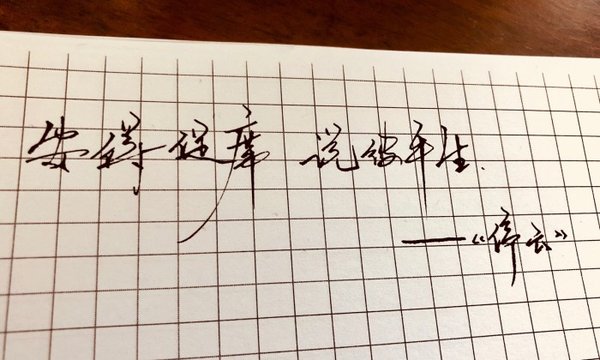 安得促席 说彼平生.
——“停云”